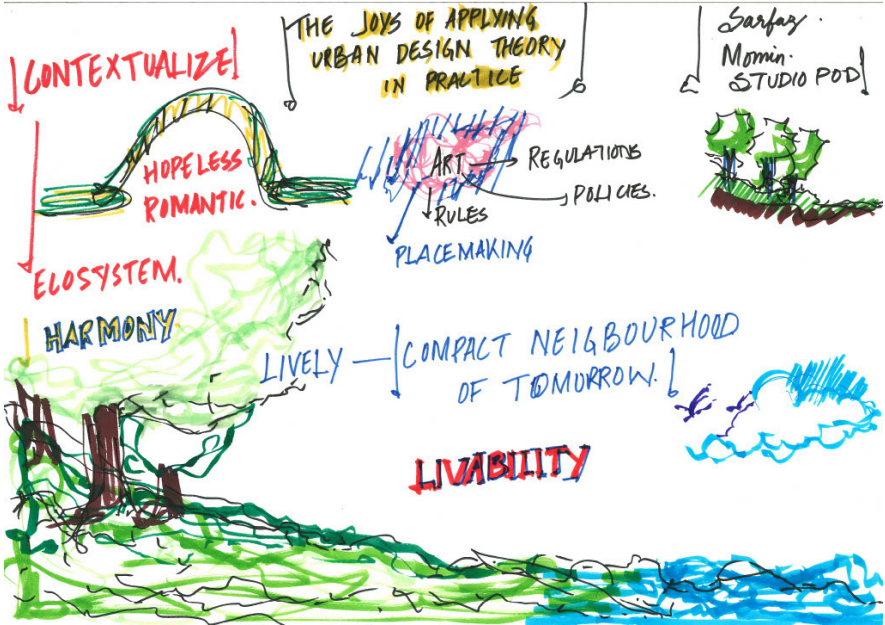 THE JOYS OF APPLYING
URBAN DESIGN THEORY
IN PRACTICE
Sarfaz.
Momin.
STUDIO POD
CONTEXTUALIZE
HOPELESS
ROMANTIC.
ART
REGULATIONS
POLICIES.
RULES
PLACEMAKING
ECOSYSTEM.
HARMONY
LIVELY — COMPACT NEIGBOURHOOD
OF TOMORROW.
LIVABILITY